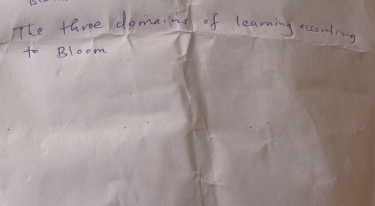 The three domains of learning according
to Bloom